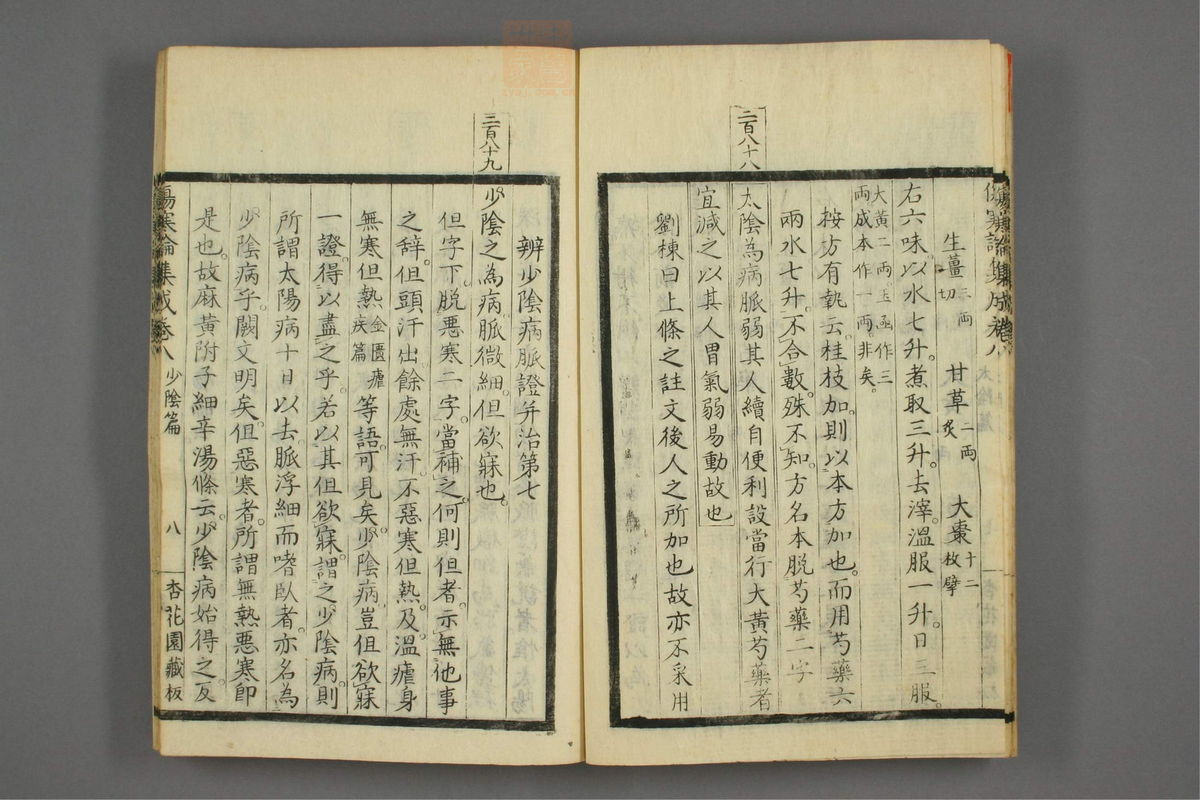 生薑三両切 甘草二両炙 大棗十二枚擘
右六味。以水七升。煮取三升。去滓。溫服一升。日三服。
大黃二両玉函作三両成本作一両非矣。
按方有執云。桂枝加則以本方加也。而用芍藥六
兩水七升。不合數。殊不知。方名本脫芍藥二字
二百八十八
太陰為病脈弱其人續自便利設當行大黃芍藥者
宜減之以其人胃氣弱易動故也
劉棟曰上條之註文後人之所加也故亦不采用
傷寒論集成卷八
辨少陰病脈證并治第七
三百八十九
少陰之為病。脈微細。但欲寐也。
但字下。脫惡寒二字。當補之。何則但者示無他事
之辭。但頭汗出餘處無汗。不惡寒但熱。及溫瘧身
無寒但熱金匱瘧疾篇等語。可見矣。少陰病豈但欲寐
一證。得以盡之乎。若以其但欲寐。謂之少陰病。則
所謂太陽病十日以去脈浮細而嗜臥者。亦名為
少陰病乎。闕文明矣。但惡寒者。所謂無熱惡寒即
是也。故麻黃附子細辛湯條云。少陰病始得之。反
傷寒論集成卷八 少陰篇 八 杏花園藏板